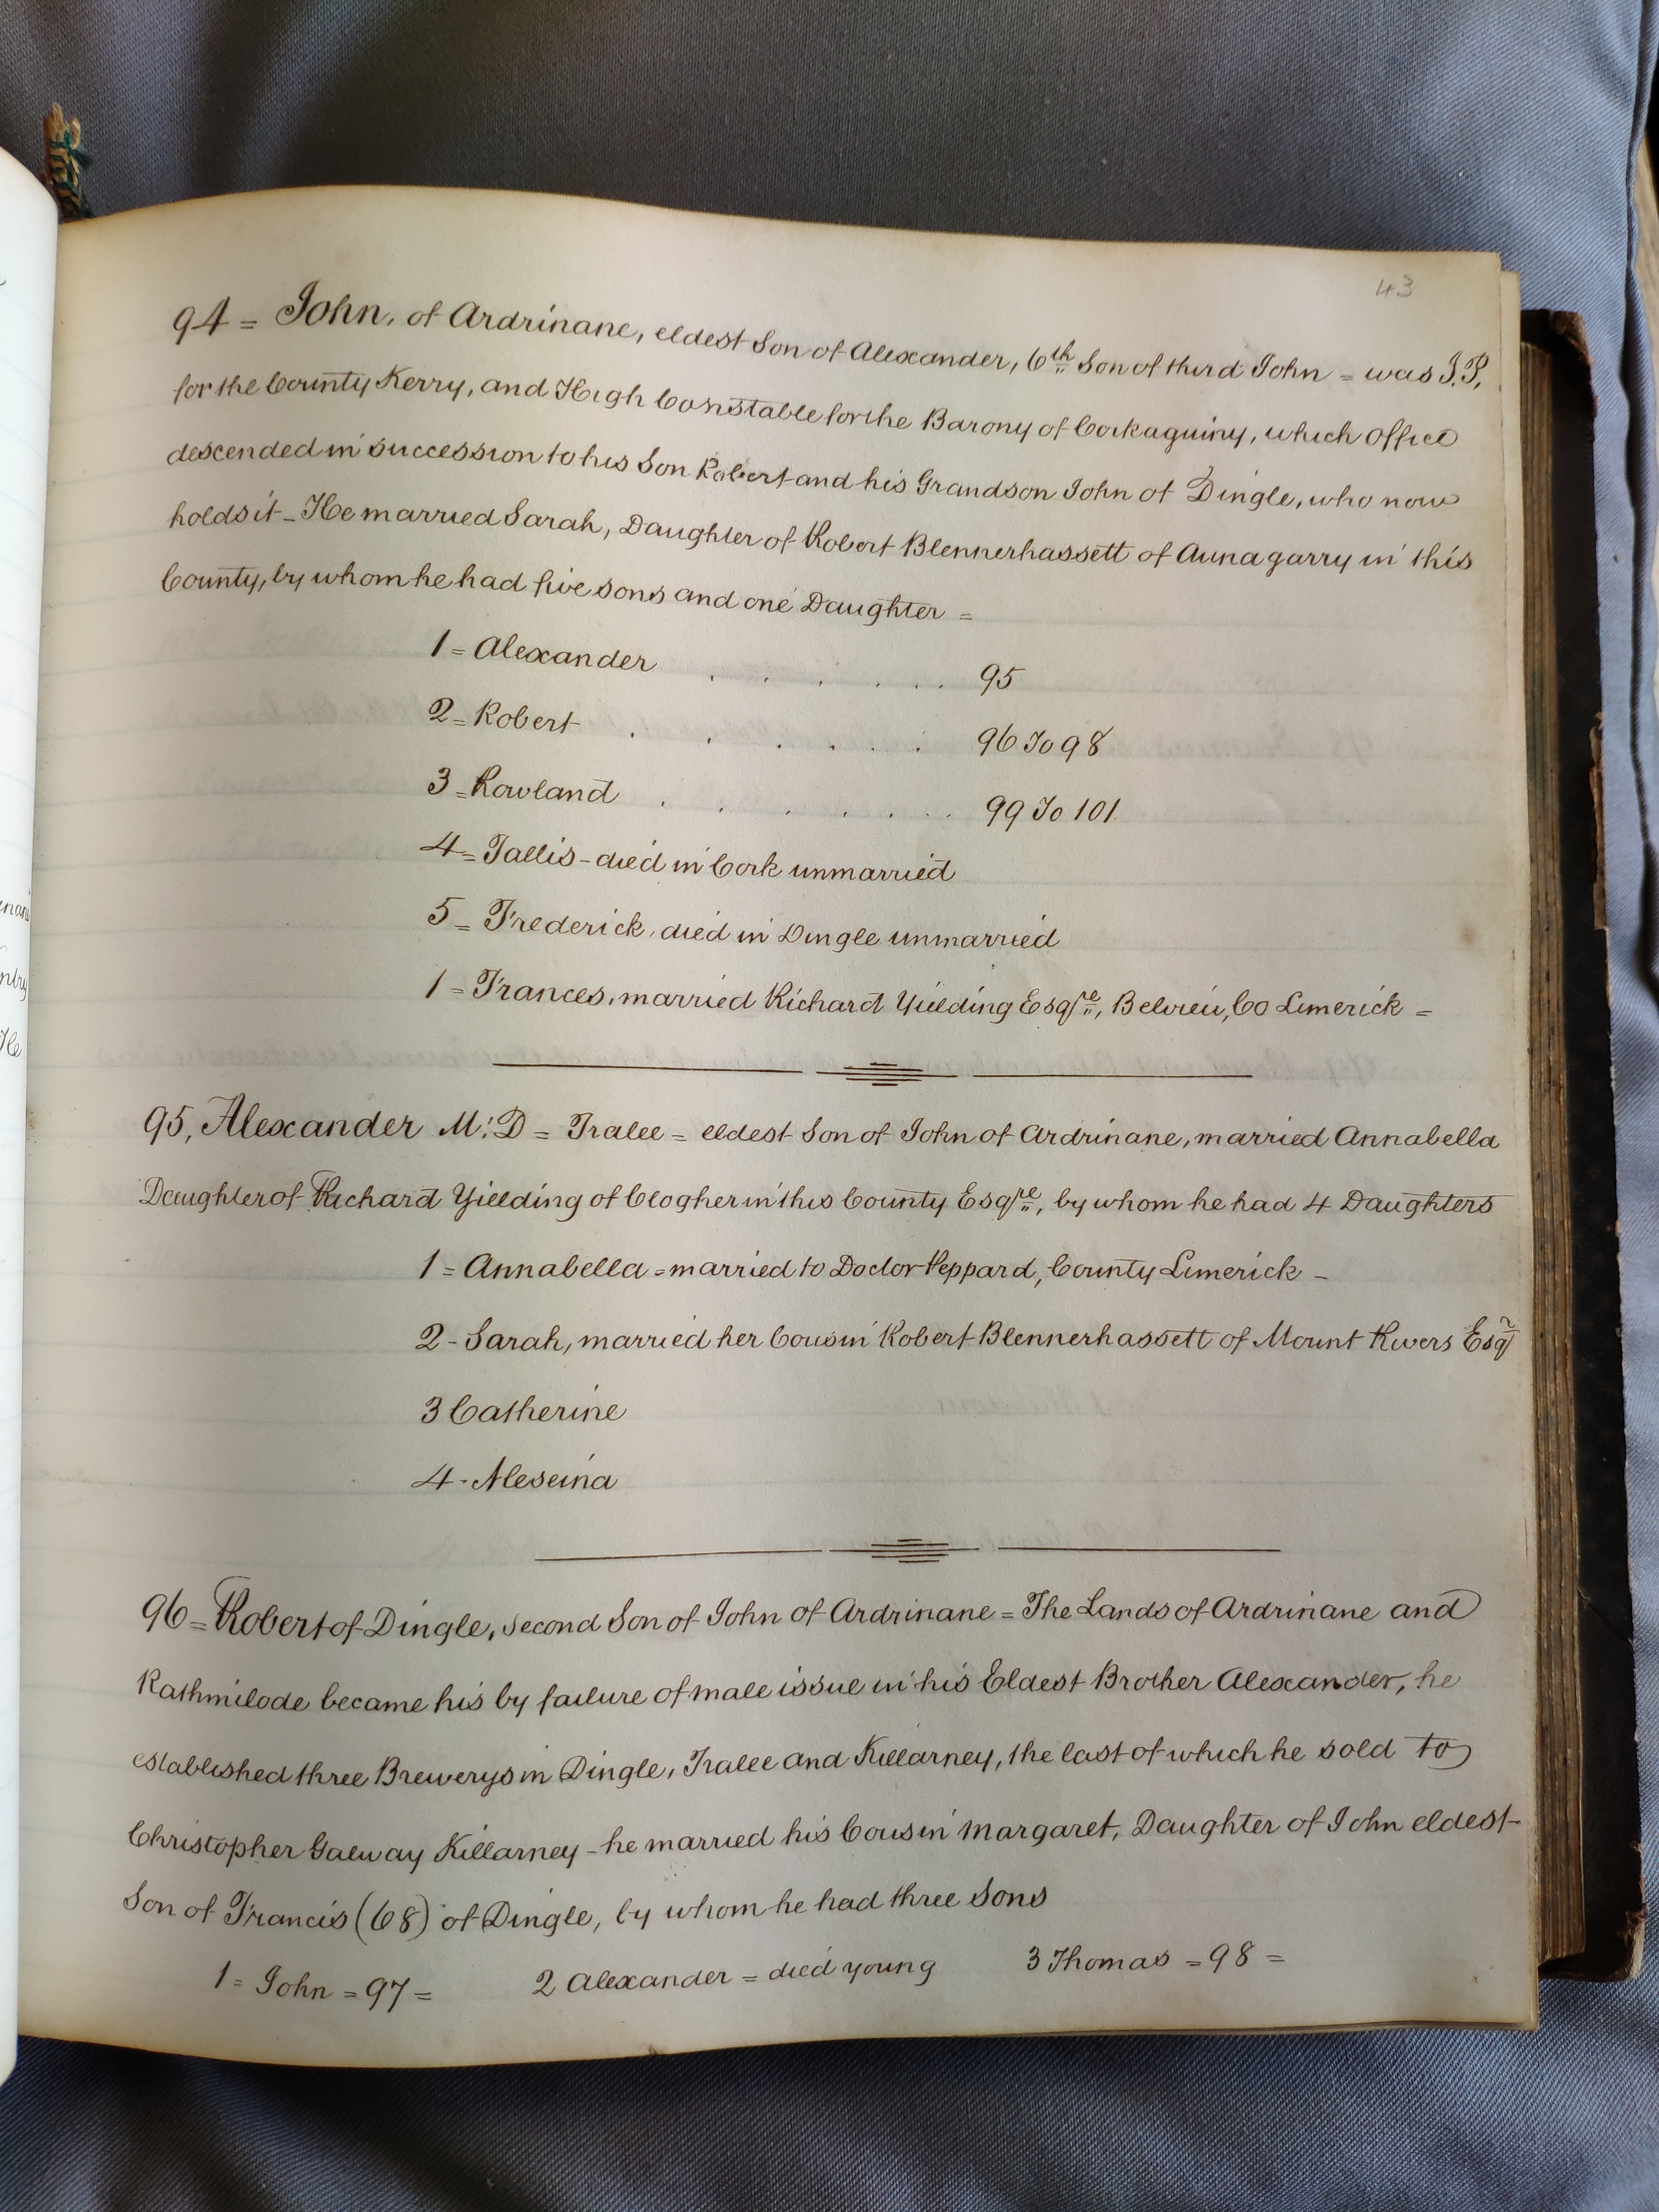 43
94 = John, of Ardrinane, eldest Son of Alexander, 6th Son of third John = was J.P.
for the County Kerry, and High Constable for the Barony of Corkaguiny, which Office
descended in succession to his Son Robert and his Grandson John of Dingle, who now
holds it - He married Sarah, Daughter of Robert Blennerhassett of Aunagarry in this
County, by whom he had five sons and one Daughter =
1 = Alexander . . . . . . . 95
2 = Robert . . . . . . 96 To 98
3 = Rowland . . . . . . . 99 To 101
4 = Tallis - died in Cork unmarried
5 = Frederick, died in Dingle unmarried
1 = Frances, married Richard Yielding Esqre, Belvieu, Co Limerick =
95, Alexander M.D = Tralee = eldest Son of John of Ardrinane, married Annabella
Daughter of Richard Yielding of Clogher in this County Esqre, by whom he had 4 Daughters
1 = Annabella = married to Doctor Peppard, County Limerick -
2 - Sarah, married her Cousin Robert Blennerhassett of Mount Rivers Esq
3 Catherine
4 - Aleseina
96 = Robert of Dingle, second Son of John of Ardrinane = The Lands of Ardrinane and
Rathmilode became his by failure of male issue in his Eldest Brother Alexander, he
established three Brewerys in Dingle, Tralee and Killarney, the last of which he sold to
Christopher Galway Killarney - he married his Cousin Margaret, Daughter of John eldest
Son of Francis (68) of Dingle, by whom he had three Sons
1 = John = 97 = 2 Alexander = died young 3 Thomas = 98 =